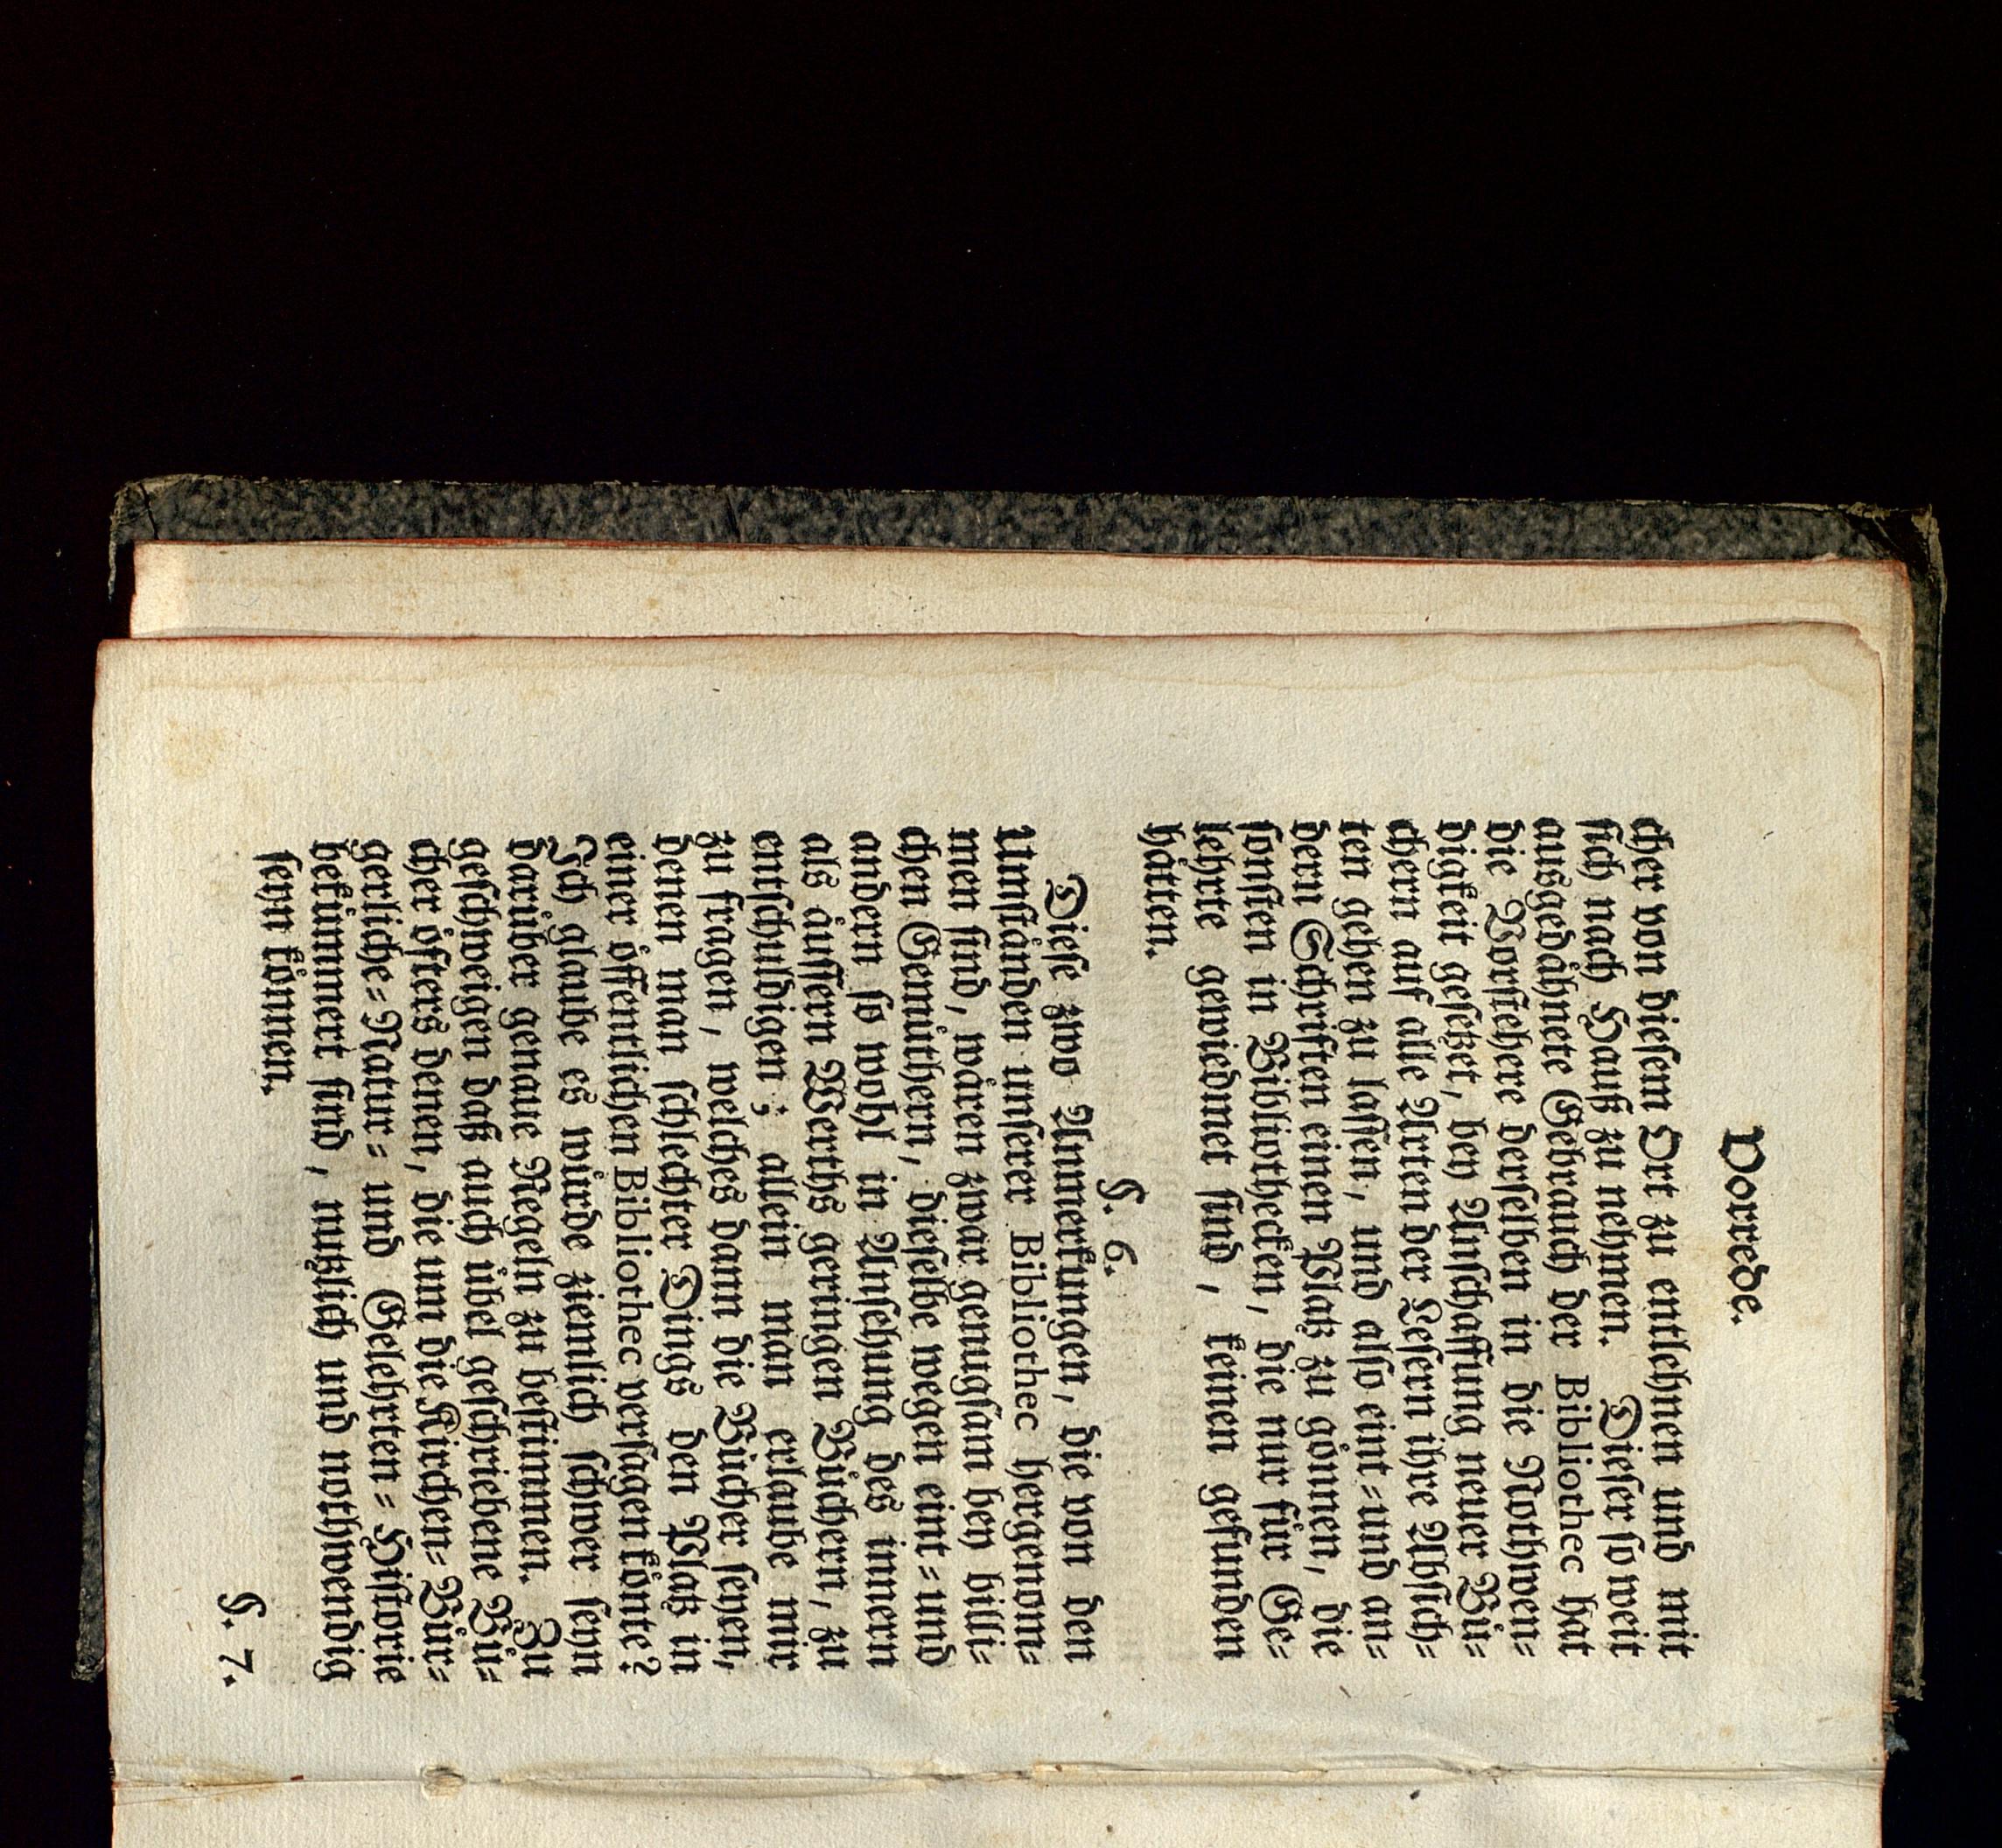 Vorrede.
cher von diesem Ort zu entlehnen und mit
sich nach Hauß zu nehmen. Dieser so weit
ausgedåhnete Gebrauch der Bibliothec hat
die Vorstehere derselben in die Nothwen⸗
digkeit gesetzet, bey Anschaffung neuer Bů⸗
chern auf alle Arten der Lesern ihre Absich⸗
ten gehen zu lassen, und also eint⸗und an⸗
dern Schriften einen Platz zu gönnen, die
sonsten in Bibliothecken, die nur für Ge⸗
lehrte gewiedmet sind, keinen gefunden
håtten.
§. 6.
Diese zwo Anmerkungen, die von den
Umstånden unserer Bibliothec hergenom⸗
men sind, wåren zwar genugsam bey billi⸗
chen Gemůthern, dieselbe wegen eint⸗und
andern so wohl in Ansehung des innern
als åussern Werths geringen Bůchern, zu
entschuldigen; allein man erlaube mir
zu fragen, welches dann die Bücher seyen,
denen man schlechter Dings den Platz in
einer öffentlichen Bibliothec versagen könte?
Ich glaube es wůrde ziemlich schwer seyn
darůber genaue Regeln zu bestimmen. Zu
geschweigen daß auch ůbel geschriebene Bů⸗
cher öfters denen, die um die Kirchen⸗Bůr⸗
gerliche⸗Natur⸗ und Gelehrten⸗Historie
bekůmmert sind, nutzlich und nothwendig
seyn können.
§. 7.